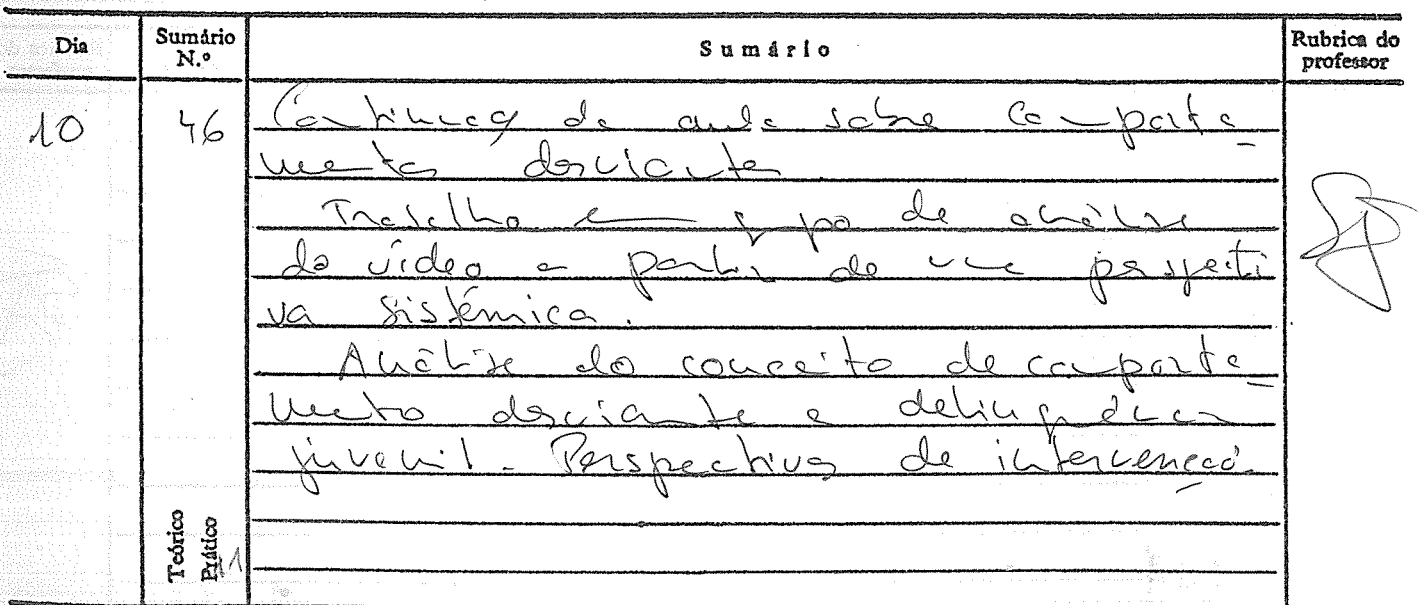 Dia
Sumário N.º
Sumário
Rubrica do professor
10
46
Continuação da aula sobre comporta-
mentos desviantes
Trabalho em grupo de análise
do vídeo a partir de uma perspecti
va sistémica.
Análise do conceito de comporta-
mento desviante e delinquência
juvenil. Perspectivas de intervenção.
Teórico
Prático